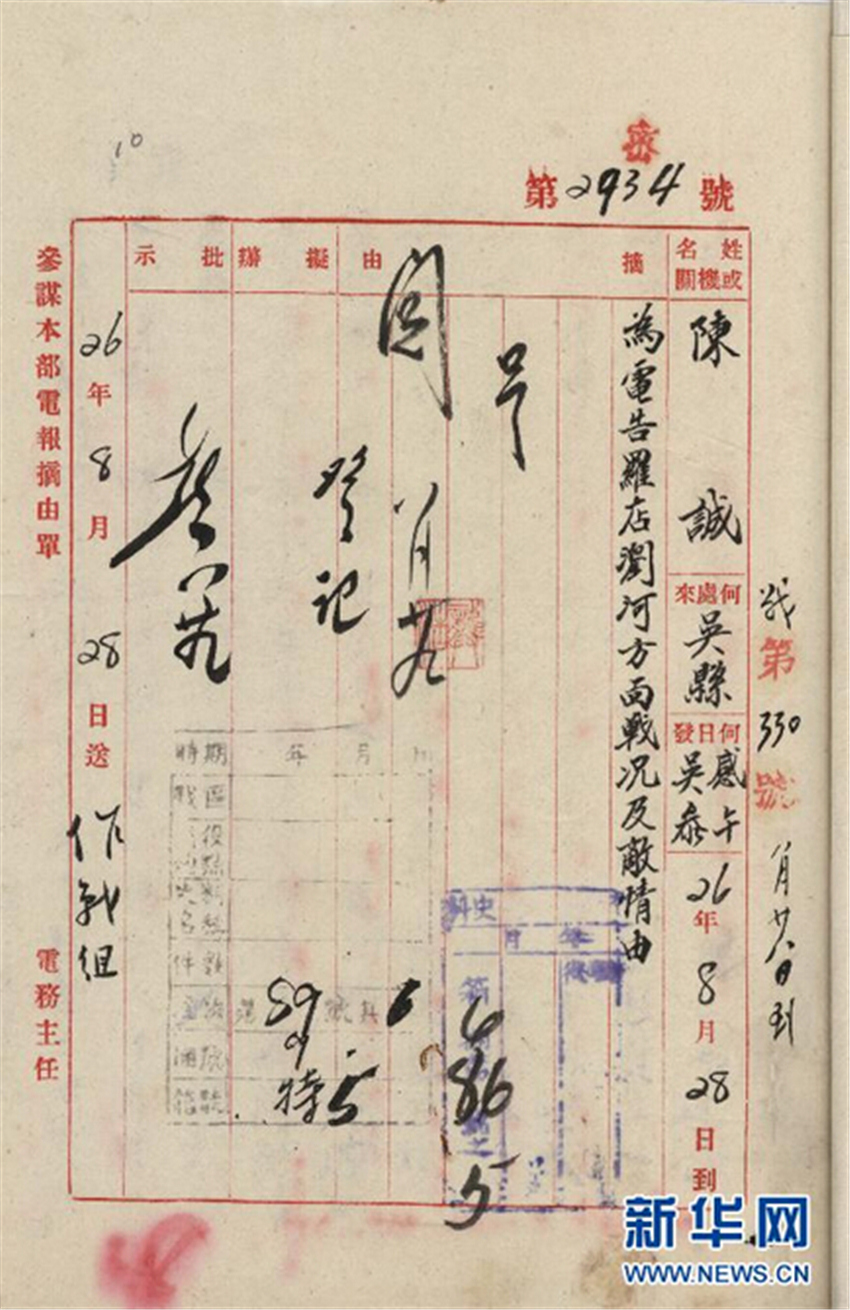 10
密
第2934號
戰第330號 八月廿八日到
姓名或機關
陳誠
何處來
吳縣
何日發
感午
吳
26年8月28日到
摘由
為電告羅店瀏河方面戰况及敵情由
閱
八月廿九
擬辦
登記
批示
史料
年 月
6
86
5
時期 年 月 日
戰區
件數
59
特5
6
26年8月28日送
作戰組
參謀本部電報摘由單
電務主任
新华网
WWW.NEWS.CN